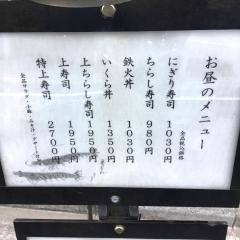 お昼のメニュー
全品税込価格
にぎり寿司 1030円
ちらし寿司 980円
鉄火丼 1030円
いくら丼 1350円
上ちらし寿司 1950円
上寿司 1950円
特上寿司 2700円